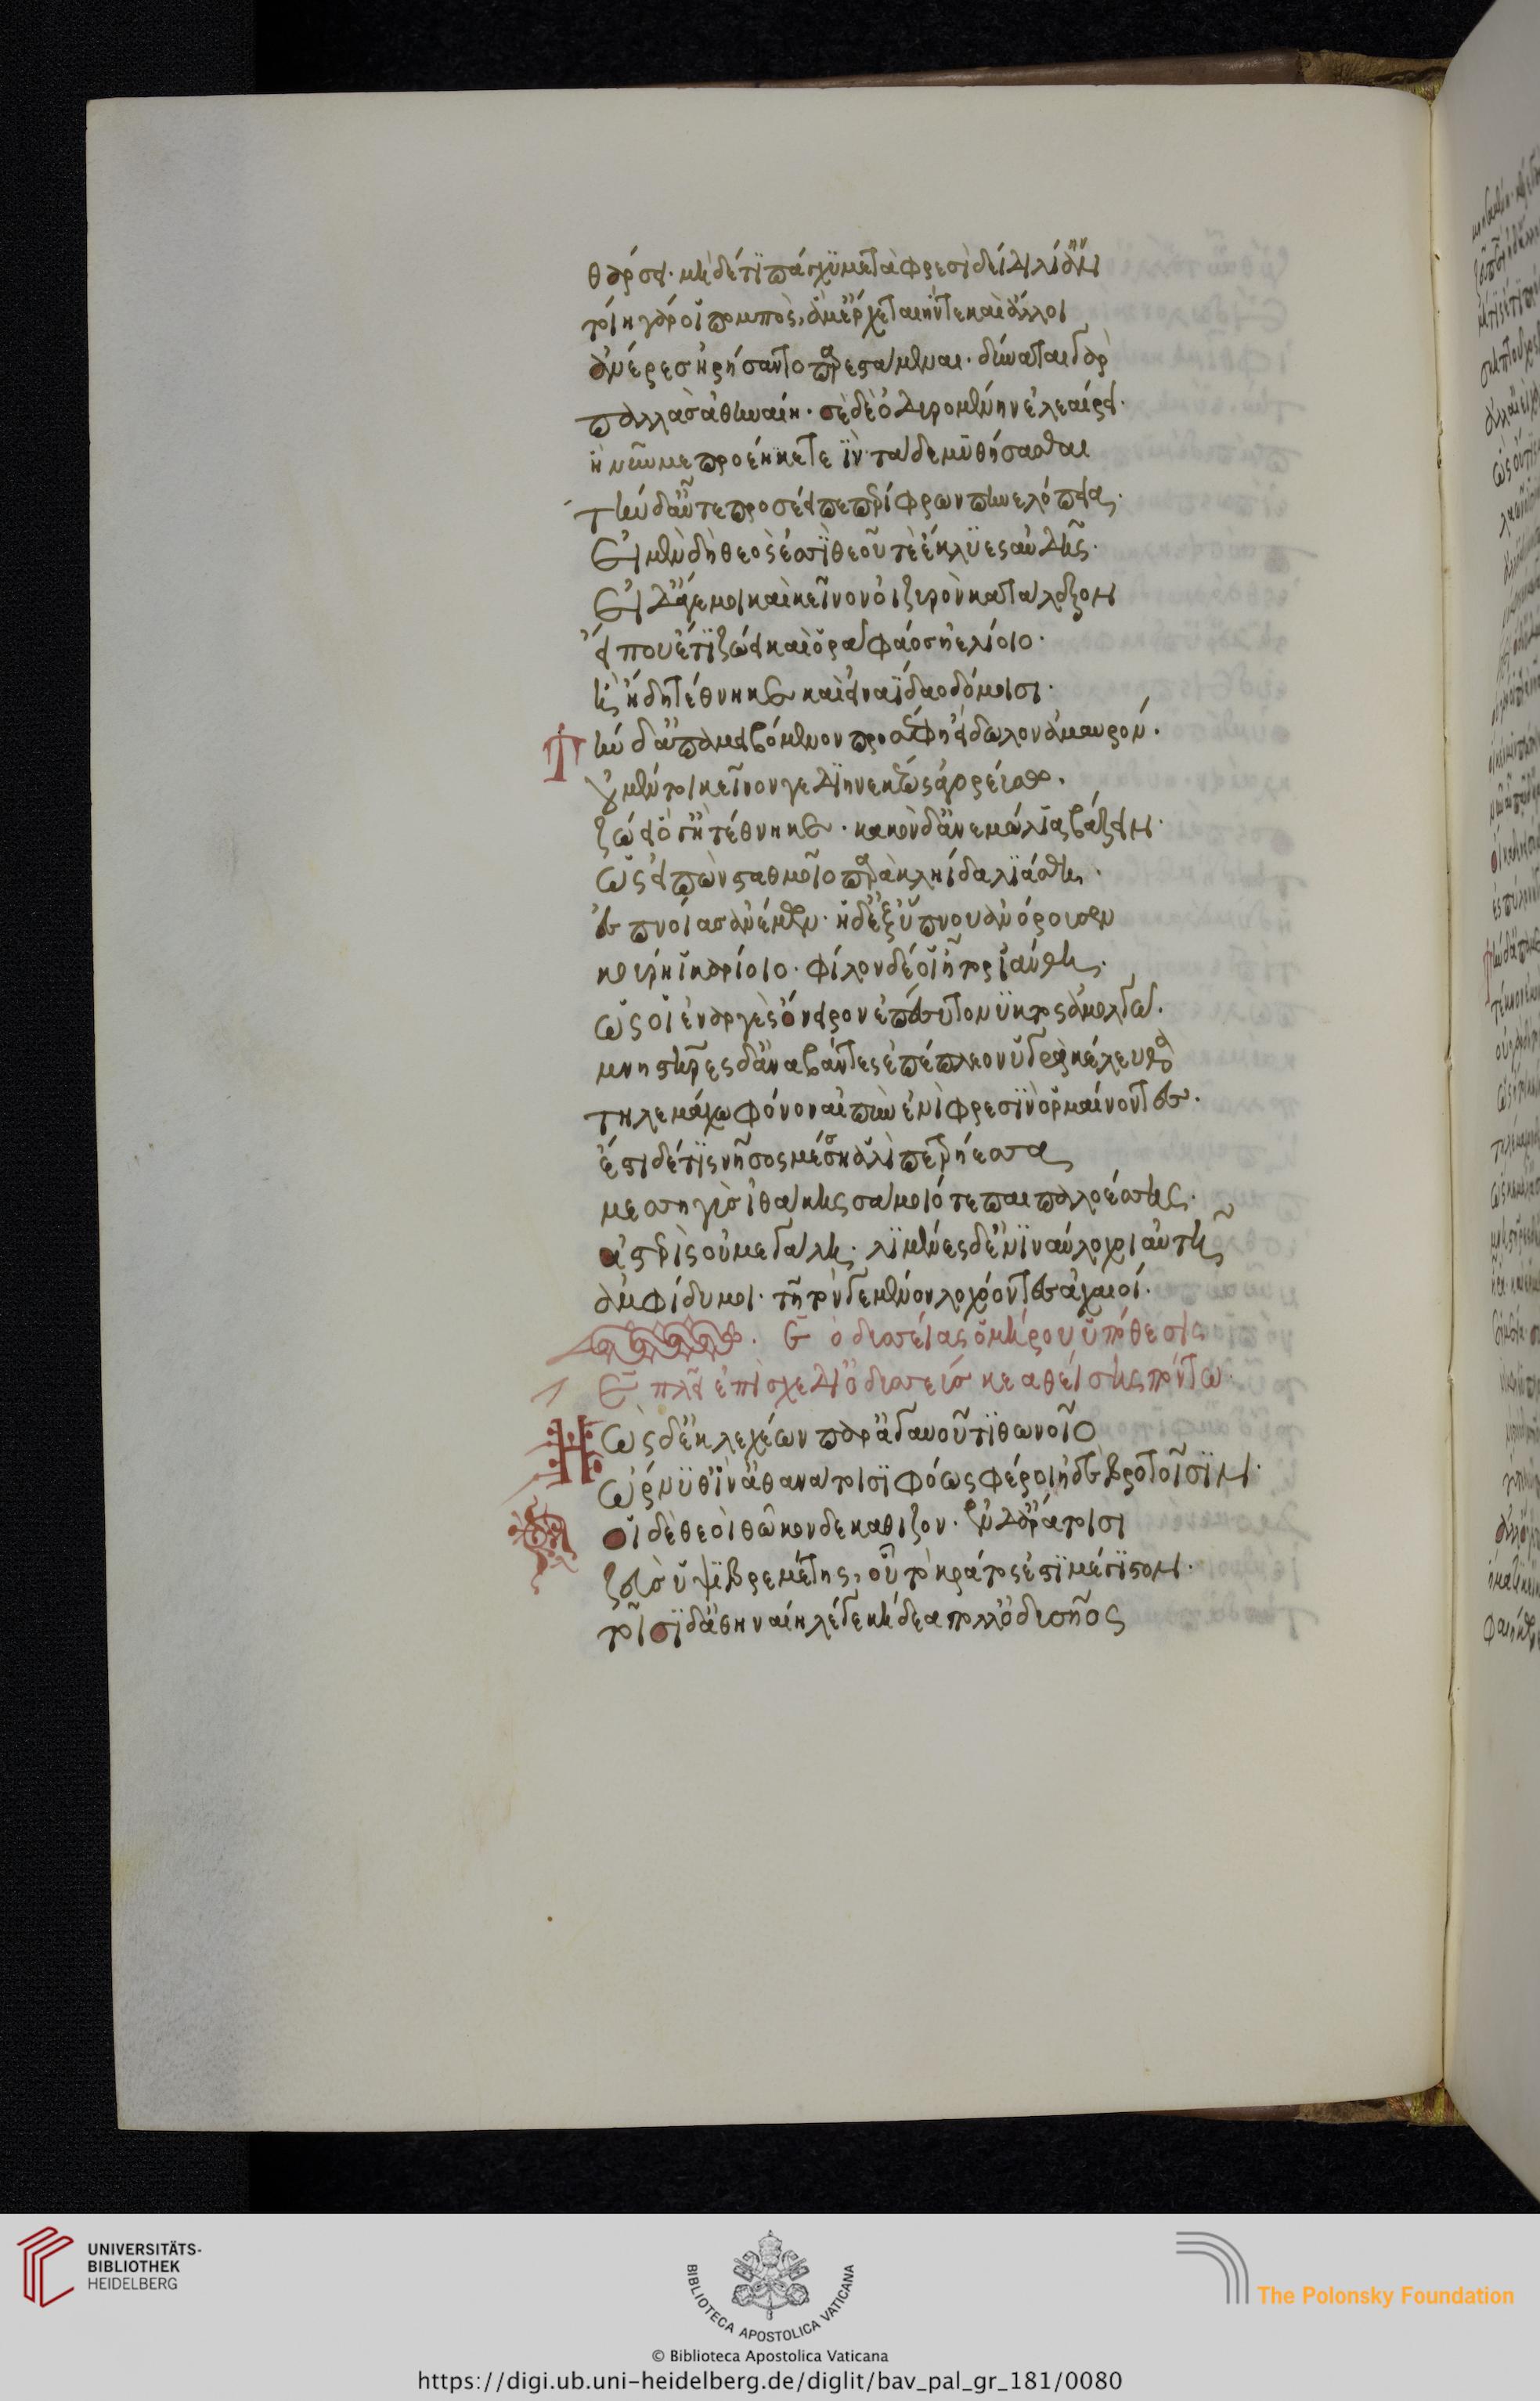 θάρσει· μηδέ τι πάγχυ μετὰ φρεσὶ δείδιθι λίην
τοίη γάρ οἱ πομπὸς, ἅμ' ἔρχεται ἥντε καὶ ἄλλοι
ἀνέρες ἠρήσαντο παρεστάμεναι· δύναται γάρ
παλλὰς ἀθηναίη· σὲ δὲ ὀδυρομένην ἐλεαίρει·
ἣ νῦν με προέηκε τεῒν τάδε μυθήσασθαι
τὴν δ' αὖτε προσέειπε περίφρων πηνελόπεια·
Εἰ μὲν δὴ θεός ἐσσι θεοῦ τε ἔκλυες αὐδῆς·
Εἰ δ' ἄγε μοι καὶ κεῖνον ὀϊζυρὸν κατάλεξον
εἴ που ἔτι ζώει καὶ ὁρᾷ φάος ἠελίοιο·
ἢ ἤδη τέθνηκε καὶ εἰν ἀΐδαο δόμοισι·
Τὴν δ' ἀπαμειβόμενον προσέφη εἴδωλον ἀμαυρόν·
οὐ μέν τοι κεῖνον γε διηνεκέως ἀγορεύσω·
ζώει ὅ γ' ἢ τέθνηκε· κακὸν δ' ἀνεμώλια βάζειν·
ὣς εἰπὼν σταθμοῖο παρὰ κληίδα λιάσθη·
ἐς πνοιὰς ἀνέμων· ἡ δ' ἐξ ὕπνου ἀνόρουσεν
κούρη ἰκαρίοιο· φίλον δέ οἱ ἦτορ ἰάνθη·
ὥς οἱ ἐναργὲς ὄνειρον ἐπέσσυτο νυκτὸς ἀμολγῷ·
μνηστῆρες δ' ἀναβάντες ἐπέπλεον ὑγρὰ κέλευθα
τηλεμάχω φόνον αἰπὺν ἐνὶ φρεσὶν ὁρμαίνοντες·
ἔστι δέ τις νῆσος μέσση ἁλὶ πετρήεσσα
μεσσηγὺς ἰθάκης σάμοιό τε παιπαλοέσσης·
ἀστερὶς οὐ μεγάλη· λιμένες δ' ἔνι ναύλοχοι αὐτῇ
ἀμφίδυμοι· τῇ τόν γε μένον λοχόωντες ἀχαιοί·
Ε ὀδυσσείας ὁμήρου ὑπόθεσις
Ἠὼς δ' ἐκ λεχέων παρ' ἀγαυοῦ τιθωνοῖο
ὤρνυθ' ἵν' ἀθανάτοισι φόως φέροι ἠδὲ βροτοῖσιν·
οἱ δὲ θεοὶ θῶκονδε καθίζον· ἐν δ' ἄρα τοῖσι
ζεὺς ὑψιβρεμέτης, οὗ τὸ κράτος ἐστὶ μέγιστον·
τοῖσι δ' ἀθηναίη λέγε κήδεα πόλλ' ὀδυσῆος
UNIVERSITÄTS-
BIBLIOTHEK
HEIDELBERG
BIBLIOTECA APOSTOLICA VATICANA
The Polonsky Foundation
© Biblioteca Apostolica Vaticana
https://digi.ub.uni-heidelberg.de/diglit/bav_pal_gr_181/0080